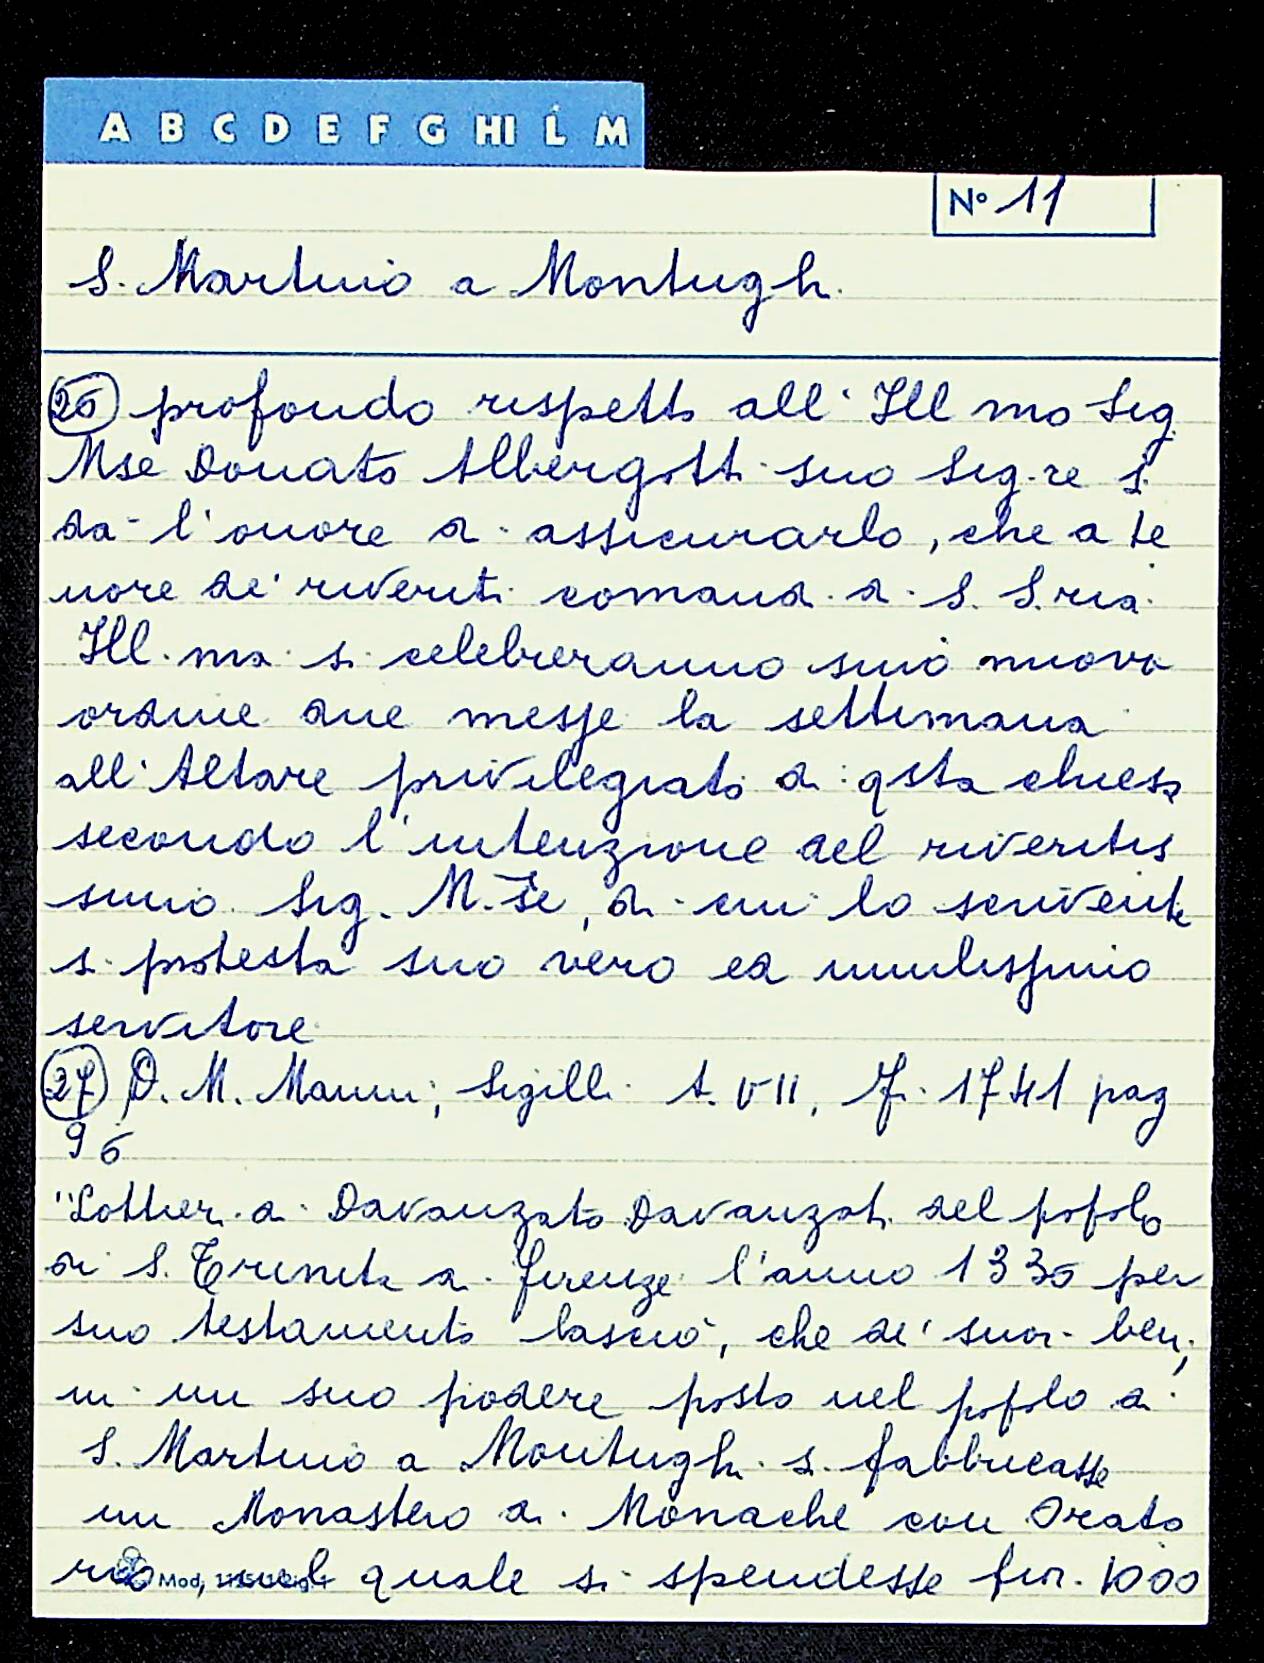 A B C D E F G HI L M
N° 11
S. Martino a Montughi
26 profondo rispetto all' Ill mo Sig.
Mse Donato Albergotti suo Sig.re si
dà l'onore di assicurarlo, che a te
nore de' riveriti comandi di S. S.ria
Ill.ma si celebreranno sino nuovo
ordine due messe la settimana
all'Altare privilegiato di qsta chiesa
secondo l'intenzione del riveritis
simo Sig. M.se, di cui lo scrivente
si protesta suo vero ed umilissimo
servitore
27 D. M. Manni, Sigilli t. VII, Fi. 1741 pag
96
"Lottieri di Davanzato Davanzati del popolo
di S. Trinita di Firenze l'anno 1336 per
suo testamento lasciò, che de' suoi beni,
in un suo podere posto nel popolo di
S. Martino a Montughi si fabbricasse
un Monastero di Monache con Orato
rio, nel quale si spendesse fior. 1000
Mod.